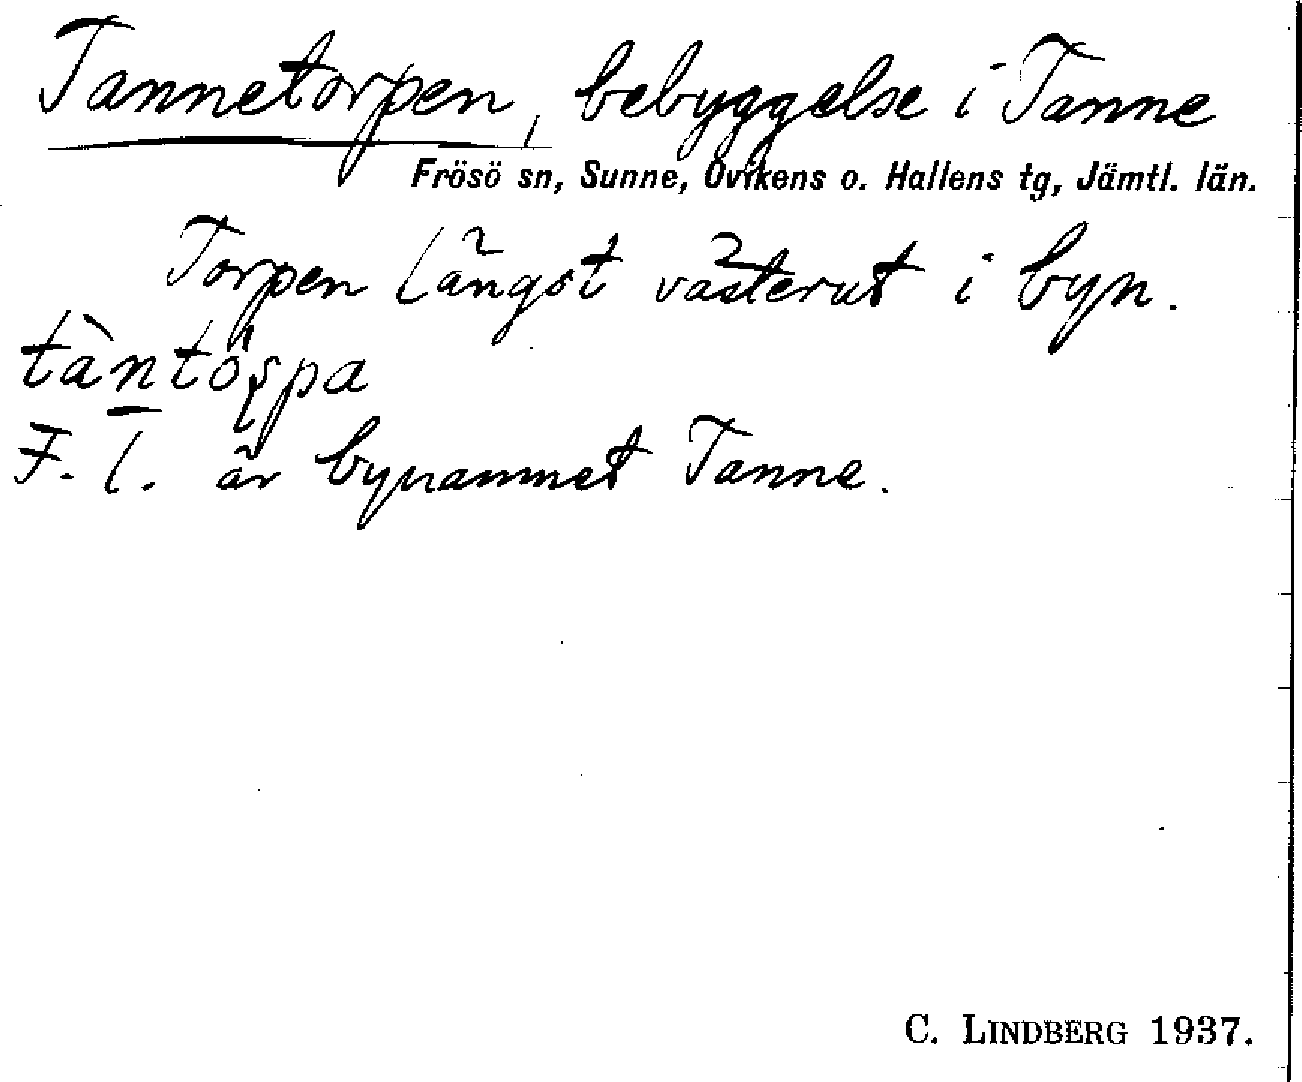 Tannetorpen, bebyggelse i Tanne
Frösö sn, Sunne, Ovikens o. Hallens tg, Jämtl. län.
Torpen längst västerut i byn.
tàntöʂpa
F. l. är bynamnet Tanne.
C. LINDBERG 1937.